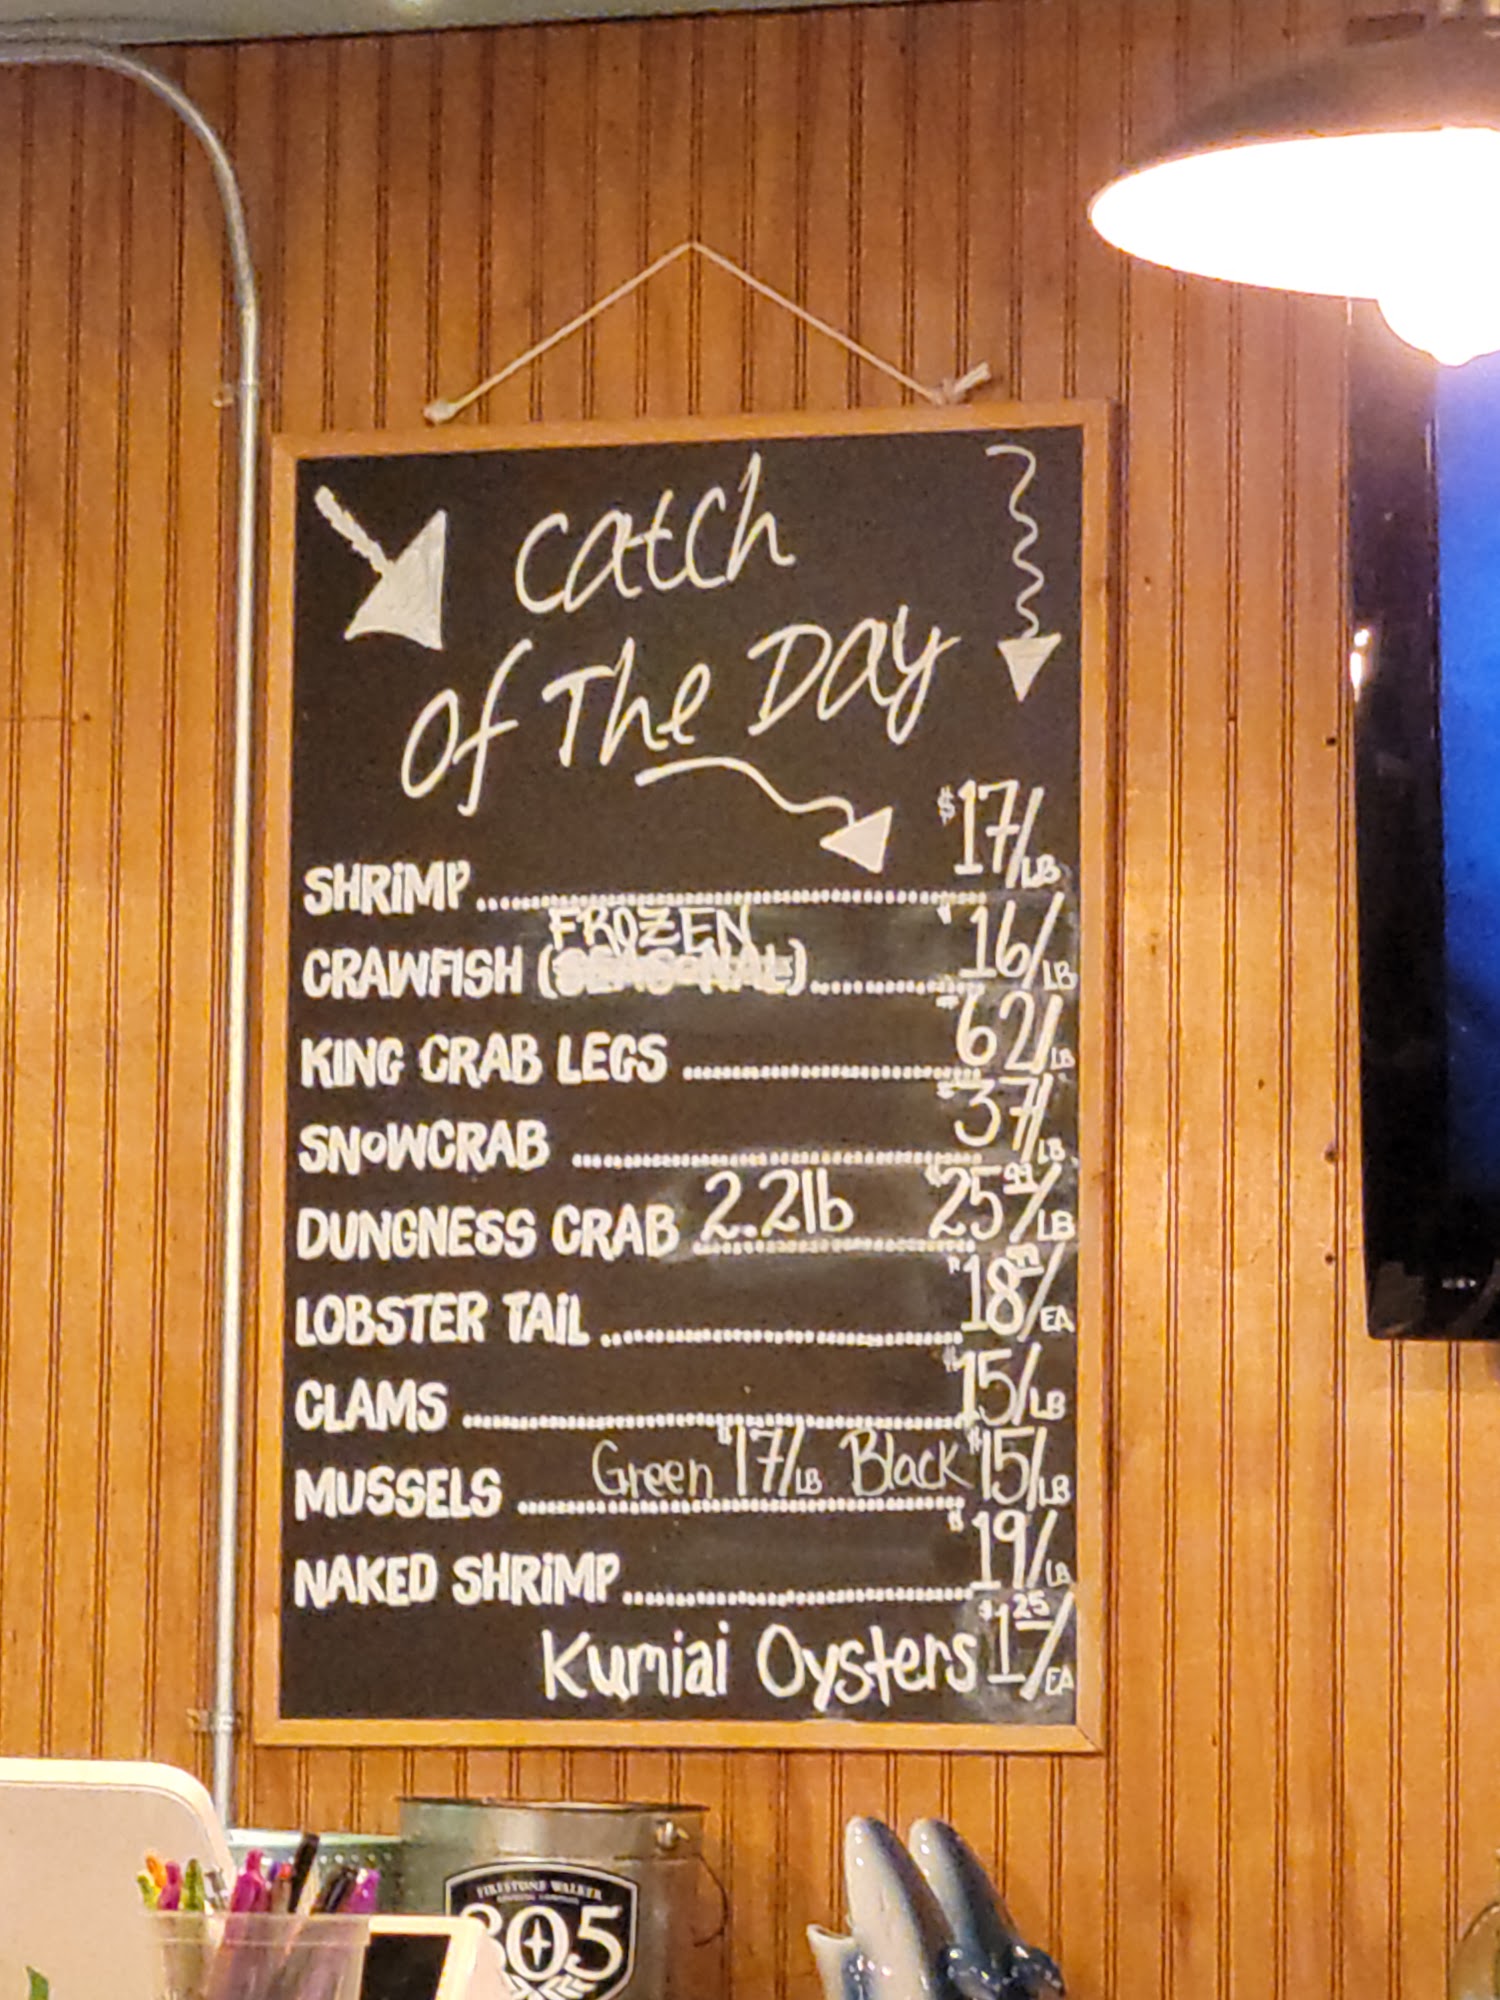 Catch
Of The Day
SHRiMP $17/LB
FROZEN
CRAWFISH (SEASONAL) $16/LB
KING CRAB LEGS $62/LB
SNOWCRAB $37/LB
DUNGNESS CRAB 2.2lb $25 99/LB
LOBSTER TAiL $18 99/EA
CLAMS $15/LB
MUSSELS Green $17/LB Black $15/LB
NAKED SHRiMP $19/LB
Kumiai Oysters $1 25/EA
FIRESTONE WALKER
805